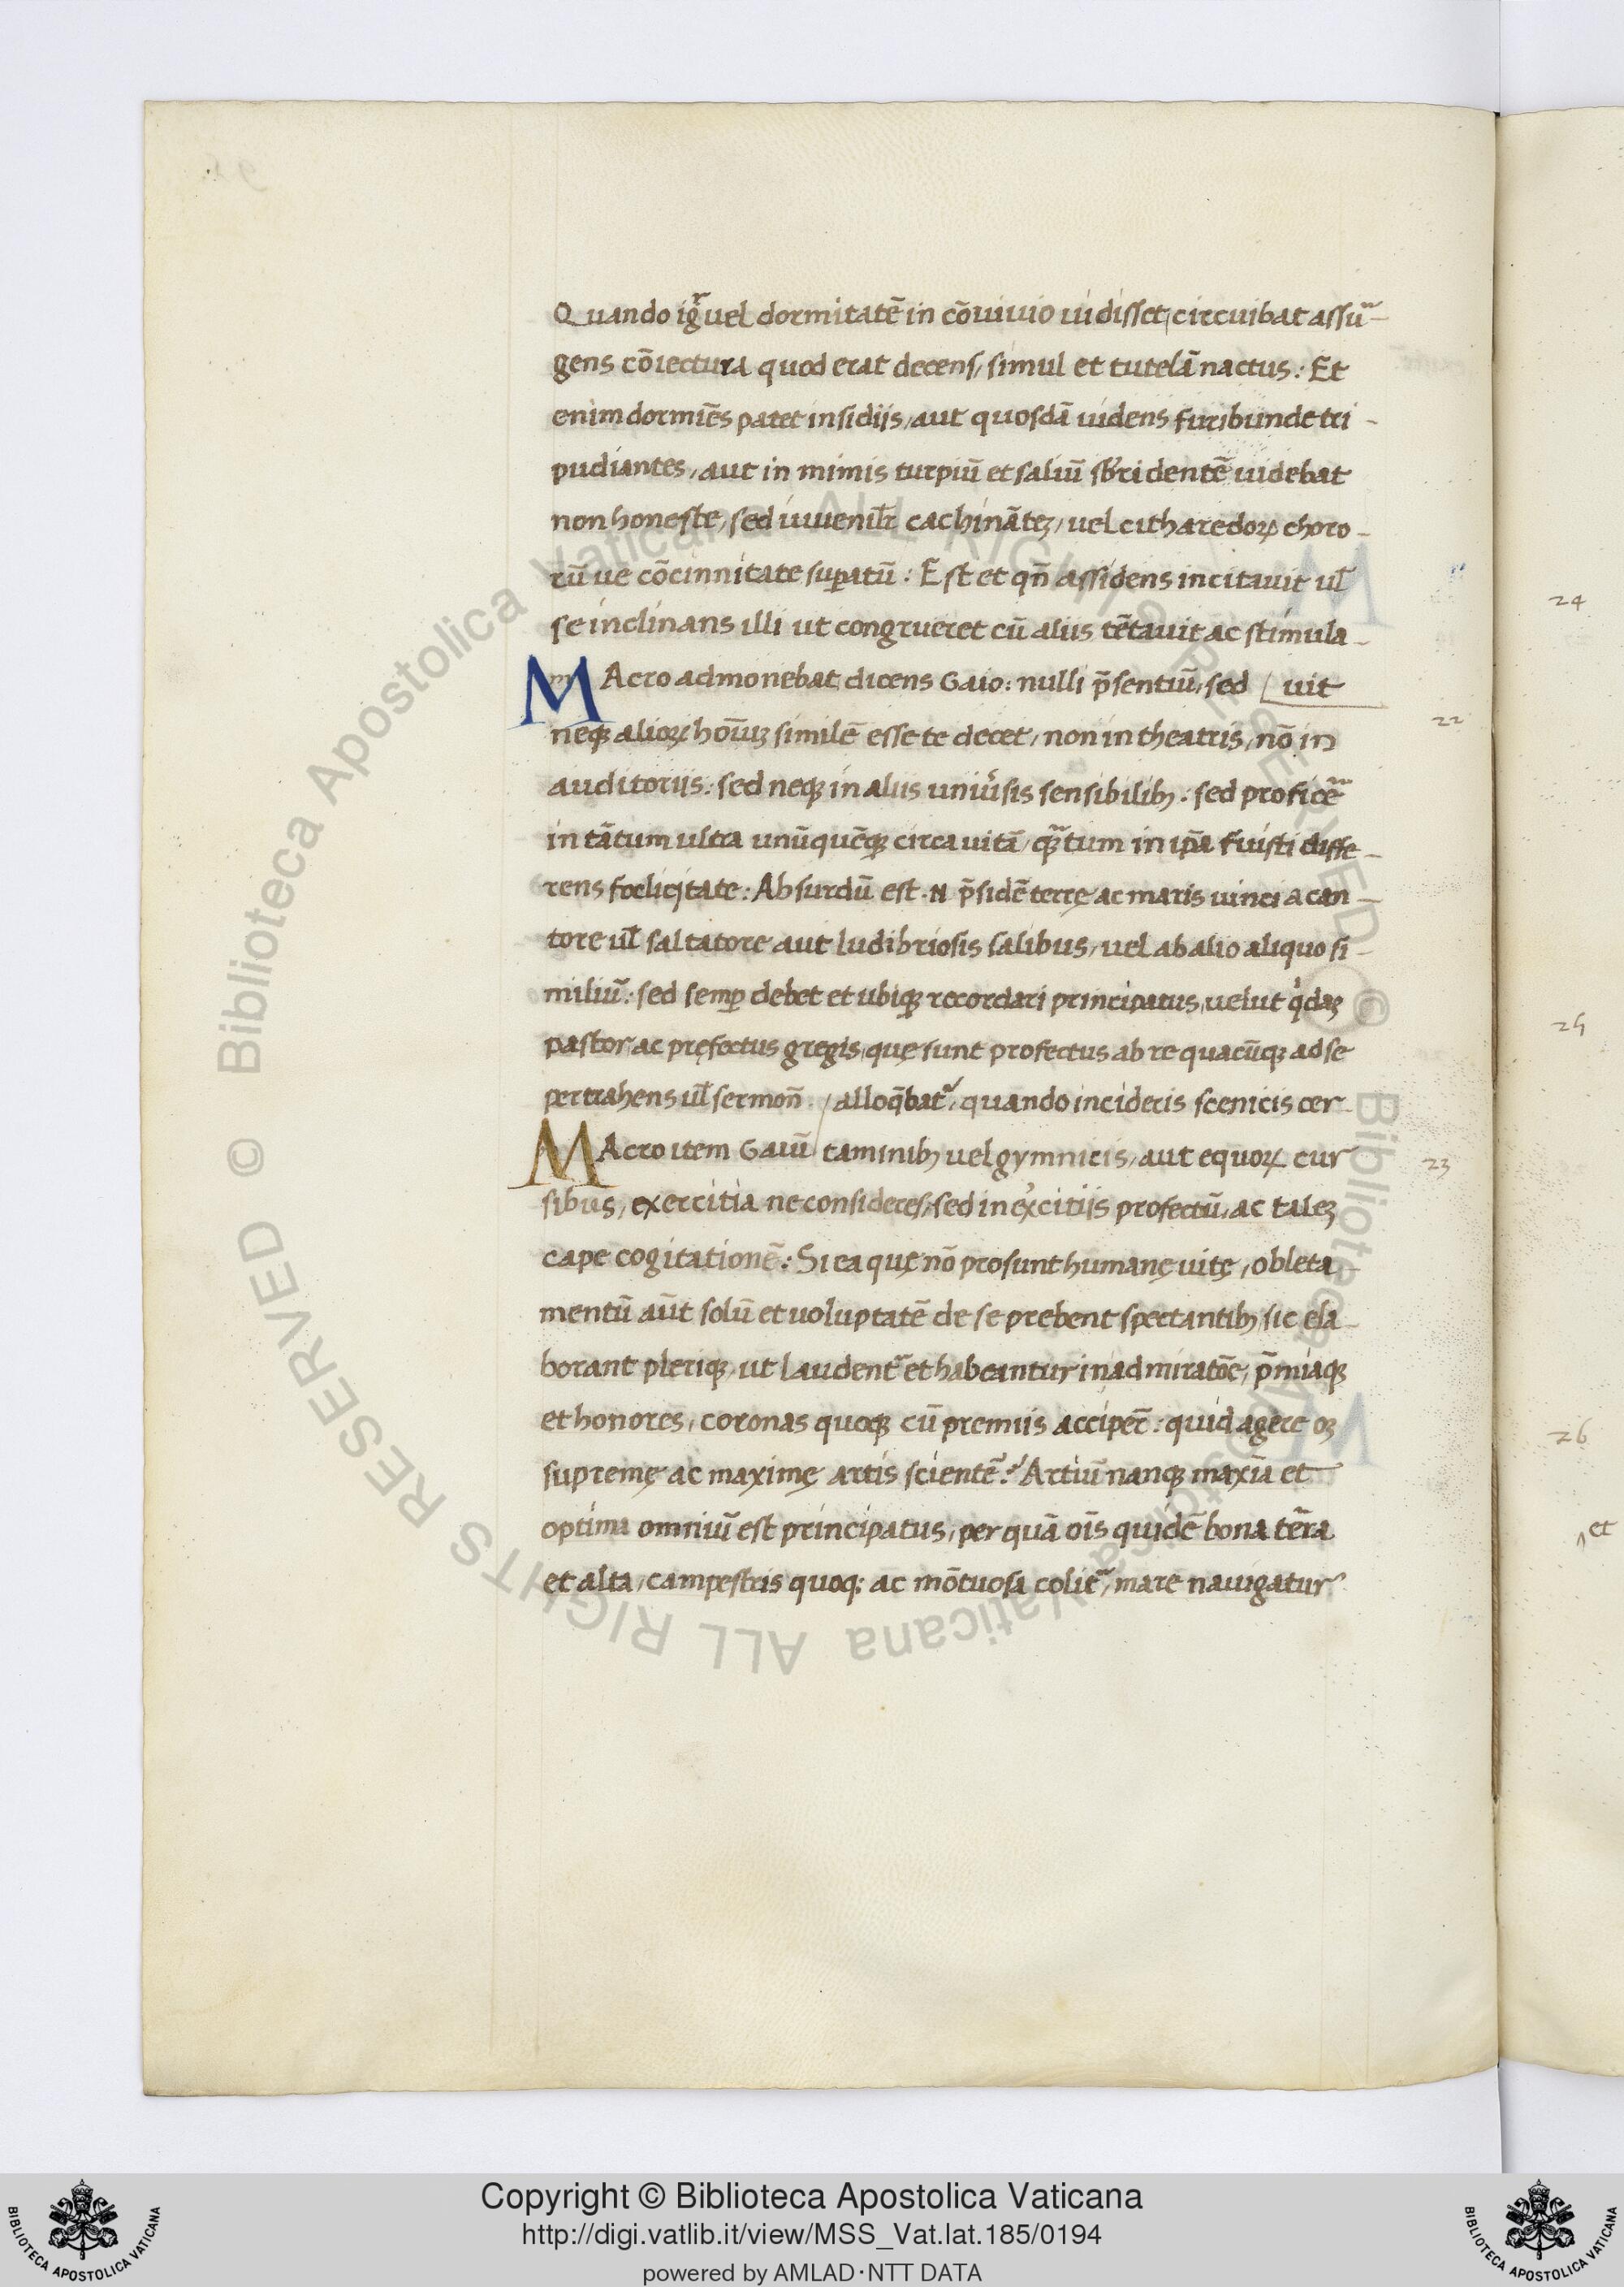 Quando igr̃ uel dormitatē in cōuiuio uidisset, circuibat assũ-
gens cōiectura quod erat decens, simul et tutelā nactus: Et
enim dormiēs patet insidijs, aut quosdā uidens furibunde tri-
pudiantes, aut in mimis turpiū et saliū sbridentē uidebat
non honeste, sed iuuenilr̃ cachināteꝫ, uel citharedoꝝ choro-
rū ue cōcinnitate suꝑatū: Est et qn̄ assidens incitauit ul̃
se inclinans illi ut congrueret cū aliis tētauit ac stimula-
MAcro admonebat dicens Gaio: nulli p̄sentiū, sed uit
neqꝫ alioꝝ hoīuꝫ similē esse te decet, non in theatris, nō in
auditoriis: sed neqꝫ in aliis uniũsis sensibilibꝫ: sed proficẽ
in tātum ultra unūquēqꝫ circa uitā, qꝫtum in ip̄a fuisti diffe-
rens foelicitate: Absurdū est .N. p̄sidē terrę ac maris uinci a can-
tore ul̃ saltatore aut ludibriosis salibus, uel ab alio aliquo si-
miliū: sed semꝑ debet et ubiqꝫ recordari principatus, uelut q̇daꝫ
pastor ac pręfectus gregis, quę sunt profectus ab re quacūqꝫ ad se
pertrahens ul̃ sermon̄. / alloq̄bat̃, quando incideris scenicis cer
MAcro item Gaiū taminibꝫ uel gymnicis, aut equoꝝ cur
sibus, exercitia ne consideres, sed in ex̃citijs profectū, ac taleꝫ
cape cogitationē: Si ea quę nō prosunt humanę uitę, obleta-
mentū aūt solū et uoluptatē de se prebent spectantibꝫ, sic ela-
borant pleriqꝫ, ut laudent̃ et habeantur in admiratōe, p̄miaqꝫ
et honores, coronas quoqꝫ cū premiis acciper̃: quid agere oꝫ
supremę ac maximę artis scientē? Artiū nanqꝫ maxīa et
optima omniū est principatus, per quā oīs quidē bona tēra
et alta, campestris quoqꝫ ac mōtuosa colit̃, mare nauigatur
22
23
24
25
26
et
Copyright © Biblioteca Apostolica Vaticana
http://digi.vatlib.it/view/MSS_Vat.lat.185/0194
powered by AMLAD·NTT DATA
BIBLIOTECA APOSTOLICA VATICANA
BIBLIOTECA APOSTOLICA VATICANA
© Biblioteca Apostolica Vaticana ALL RIGHTS RESERVED
© Biblioteca Apostolica Vaticana ALL RIGHTS RESERVED